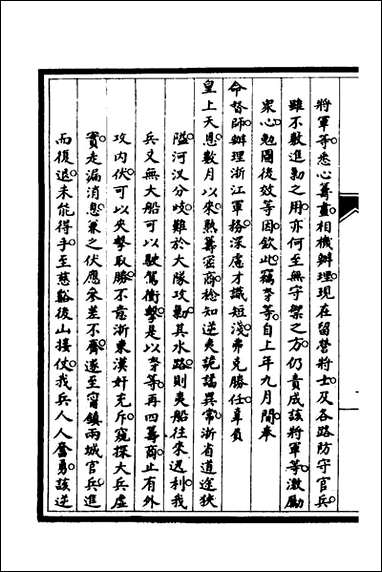 將軍等悉心籌畫相機辦理現在留營將士及各路防守官兵
雖不敷進勦之用亦何至無守禦之方仍責成該將軍等激勵
衆心勉圖後效等因欽此竊奴才等自上年九月間奉
命督師辦理浙江軍務深慮才識短淺弗克勝任辜負
皇上天恩數月以來熟籌密商稔知逆夷詭譎異常浙省道途狹
隘河汊分歧難於大隊攻勦其水路則夷船往來迅利我
兵又無大船可以駛駕衝擊是以奴才等再四籌商止有外
攻内伏可以夾擊取勝不意浙東漢奸充斥窺探大兵虛
實走漏消息兼之伏應參差不齊遂至甯鎮兩城官兵進
而復退未能得手至慈谿後山接仗我兵人人奮勇該逆